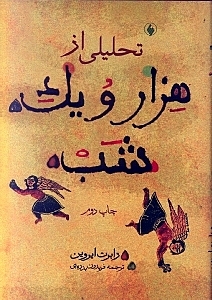 تحلیلی از
هزار و یك
شب
چاپ دوم
رابرت ایروین
ترجمه فریدون بدره‌ای